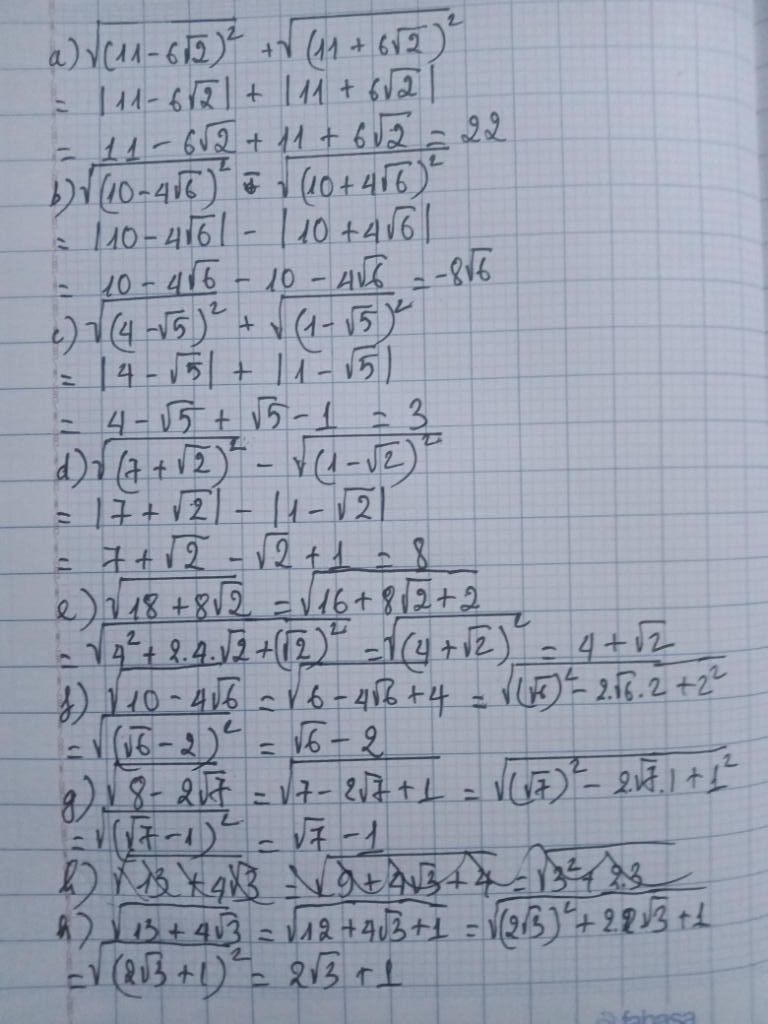 a) √(11-6√2)² + √(11+6√2)²
= |11-6√2| + |11+6√2|
= 11-6√2 + 11+6√2 = 22
b) √(10-4√6)² - √(10+4√6)²
= |10-4√6| - |10+4√6|
= 10-4√6 - 10 - 4√6 = -8√6
c) √(4-√5)² + √(1-√5)²
= |4-√5| + |1-√5|
= 4-√5 + √5-1 = 3
d) √(7+√2)² - √(1-√2)²
= |7+√2| - |1-√2|
= 7+√2 - √2+1 = 8
e) √18+8√2 = √16+8√2+2
= √4²+2.4.√2+(√2)² = √(4+√2)² = 4+√2
f) √10-4√6 = √6-4√6+4 = √(√6)²-2.√6.2+2²
= √(√6-2)² = √6-2
g) √8-2√7 = √7-2√7+1 = √(√7)²-2√7.1+1²
= √(√7-1)² = √7-1
h) √13+4√3 = √9+4√3+4 = √3²+2.3
h) √13+4√3 = √12+4√3+1 = √(2√3)²+2.2√3+1
= √(2√3+1)² = 2√3+1
fahasa